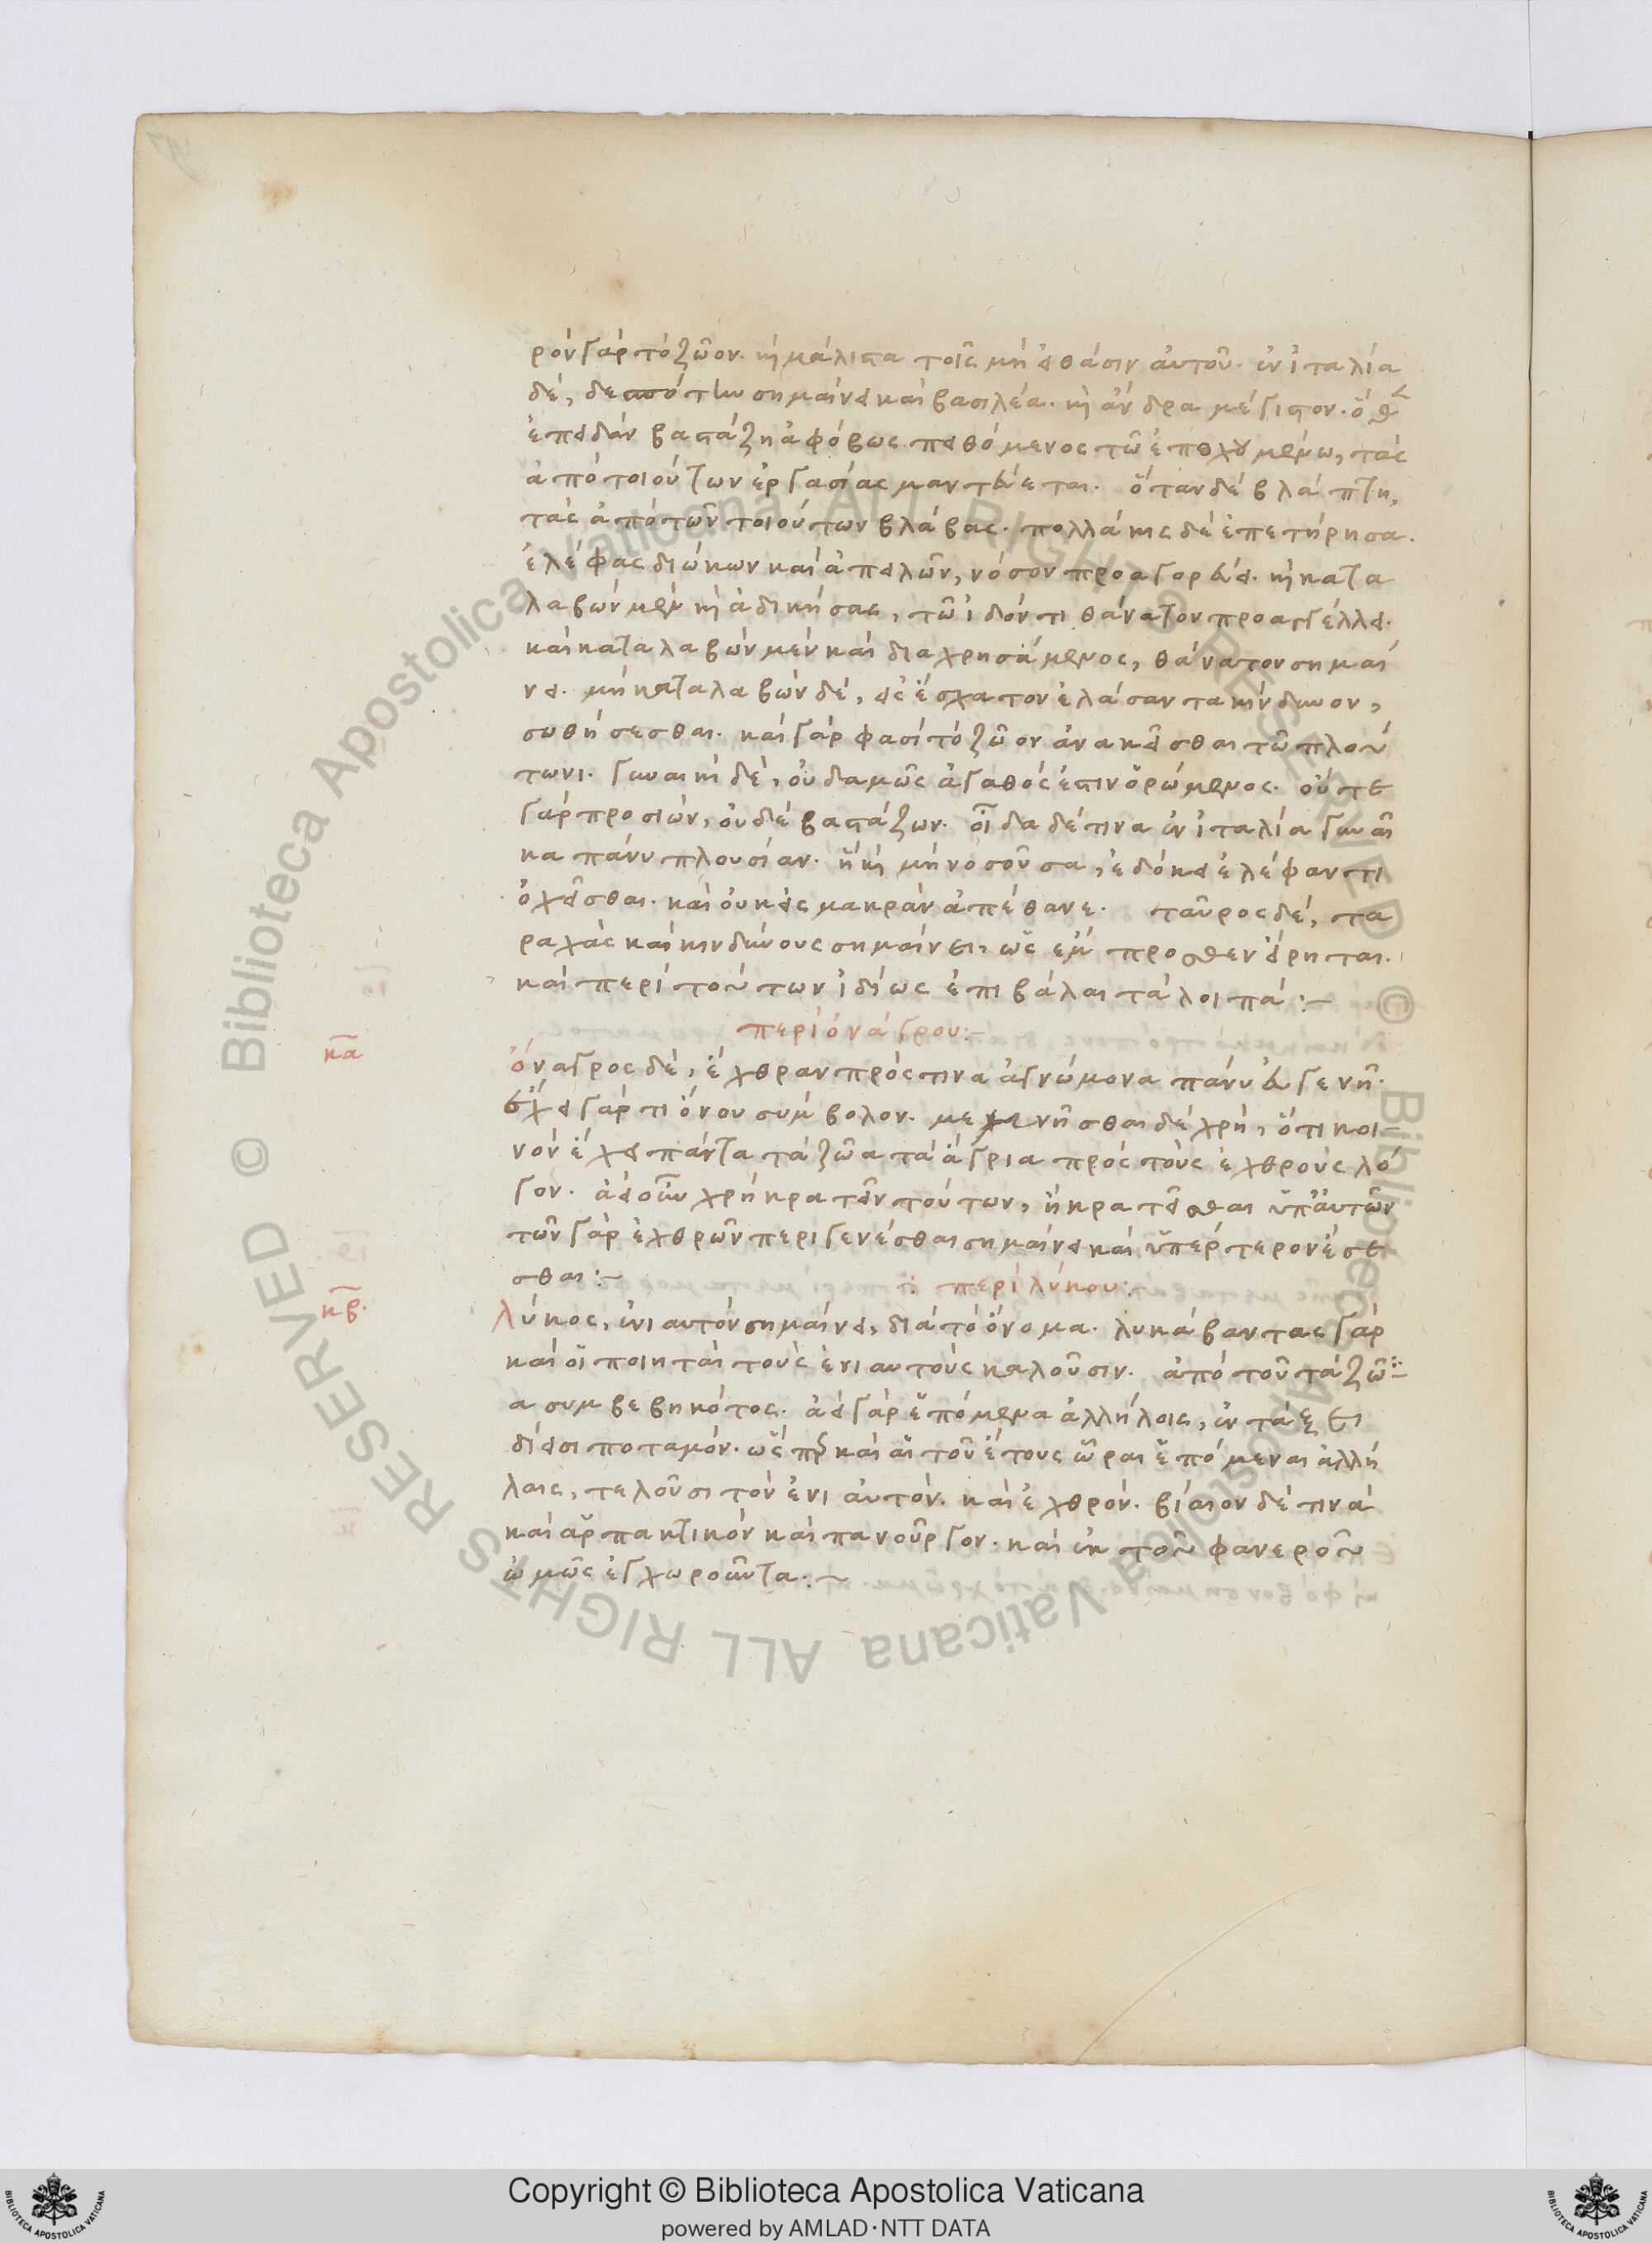 ρὸν γὰρ τὸ ζῶον. καὶ μάλιστα τοῖς μὴ εἰθάσιν αὐτοῦ. ἐν ἰταλία
δὲ, δεσπότην σημαίνει καὶ βασιλέα. καὶ ἄνδρα μέγιστον. ὅθεν
ἐπειδὰν βαστάζη ἀφόβως πειθόμενος τῶ ἐποχουμένω, τὰς
ἀπὸ τοιούτων ἐργασίας μαντεύεται. ὅταν δὲ βλάπτη,
τὰς ἀπὸ τῶν τοιούτων βλάβας. πολλάκις δὲ ἐπετήρησα.
ἐλέφας διώκων καὶ ἀπειλῶν, νόσον προαγορεύει. καὶ κατα
λαβὼν μὲν καὶ ἀδικήσας, τῶ ἰδόντι θάνατον προαγγέλλει.
καὶ καταλαβὼν μὲν καὶ διαχρησάμενος, θάνατον σημαί
νει. μὴ καταλαβὼν δὲ, εἰς ἔσχατον ἐλάσαντα κίνδυνον,
σωθήσεσθαι. καὶ γὰρ φασὶ τὸ ζῶον ἀνακεῖσθαι τῶ πλού
τωνι. γυναικὶ δὲ, οὐδαμῶς ἀγαθός ἐστιν ὁρώμενος. οὔτε
γὰρ προσιὼν, οὐδὲ βαστάζων. οἶδα δέ τινα ἐν ἰταλία γυναῖ
κα πάνυ πλουσίαν. ἣ καὶ μὴ νοσοῦσα, ἐδόκει ἐλέφαντι
ὀχεῖσθαι. καὶ οὐκ εἰς μακρὰν ἀπέθανε. ταῦρος δὲ, τα
ραχὰς καὶ κινδύνους σημαίνει, ὡς ἔμ προσθεν εἴρηται.
καὶ περὶ τούτων ἰδίως ἐπιβάλαι τὰ λοιπά:~
περὶ ὀνάγρου:~
κα
ὄναγρος δὲ, ἔχθραν πρός τινα ἀγνώμονα πάνυ εὐγενῆ.
ἔχει γάρ τι ὄνου σύμβολον. μεμνῆσθαι δὲ χρὴ, ὅτι κοι-
νὸν ἔχει πάντα τὰ ζῶα τὰ ἄγρια πρὸς τοὺς ἐχθροὺς λό
γον. ἀεὶ οὖν χρὴ κρατεῖν τούτων, ἢ κρατεῖσθαι ὑπ' αὐτῶν
τῶν γὰρ ἐχθρῶν περιγενέσθαι σημαίνει καὶ ὑπέρτερον ἔσε
σθαι:~ περὶ λύκου:
κβ.
λύκος, ἐνιαυτὸν σημαίνει, διὰ τὸ ὄνομα. λυκάβαντας γὰρ
καὶ οἱ ποιηταὶ τοὺς ἐνιαυτοὺς καλοῦσιν. ἀπὸ τοῦ τὰ ζῶ
α συμβεβηκότος. ἀεὶ γὰρ ἑπόμενα ἀλλήλοις, ἐν τάξει
δίεισι ποταμόν. ὥσπερ καὶ αἱ τοῦ ἔτους ὧραι ἑπόμεναι ἀλλή
λαις, τελοῦσι τὸν ἐνιαυτόν. καὶ ἐχθρὸν. βίαιον δέ τινα
καὶ ἁρπακτικὸν καὶ πανοῦργον. καὶ ἐκ τοῦ φανεροῦ
ὠμῶς ἐγχωροῦντα:~
Copyright © Biblioteca Apostolica Vaticana
powered by AMLAD·NTT DATA